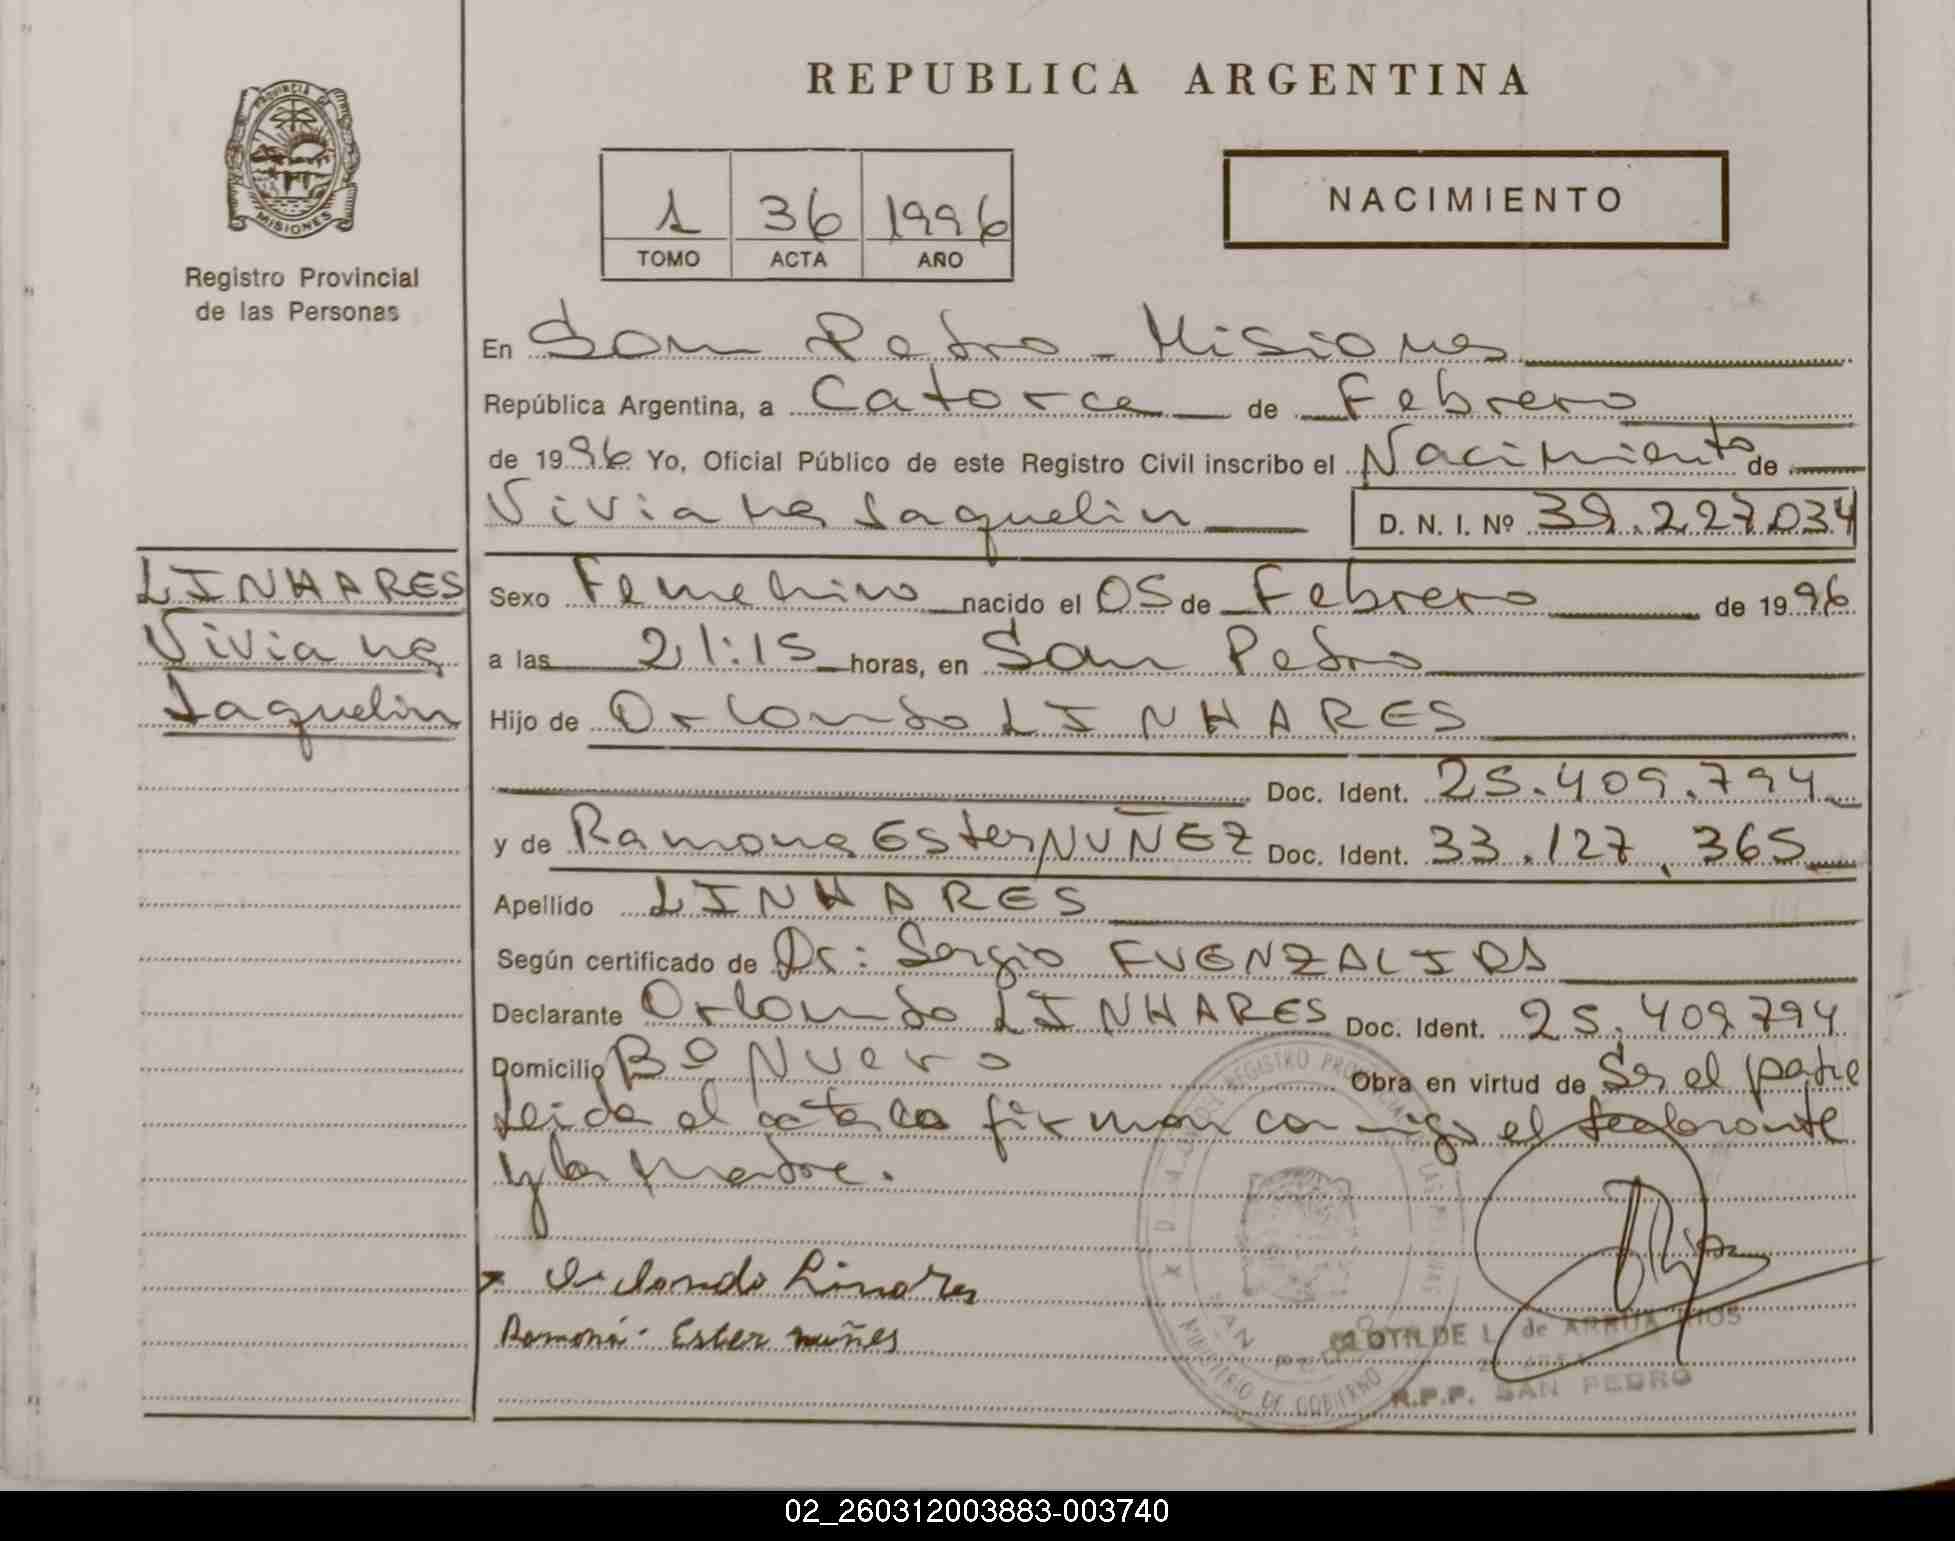 REPUBLICA ARGENTINA
PROVINCIA DE
MISIONES
Registro Provincial
de las Personas
1 36 1996
TOMO ACTA AÑO
NACIMIENTO
En San Pedro - Misiones
República Argentina, a Catorce de Febrero
de 1996 Yo, Oficial Público de este Registro Civil inscribo el Nacimiento de
Viviana Jaquelin D. N. I. Nº 39.227.034
LINHARES
Viviana
Jaquelin
Sexo Femenino nacido el 05 de Febrero de 1996
a las 21:15 horas, en San Pedro
Hijo de Orlando LINHARES
Doc. Ident. 25.409.794
y de Ramona Ester NUÑEZ Doc. Ident. 33.127.365
Apellido LINHARES
Según certificado de Dr: Sergio FUENZALIDA
Declarante Orlando LINHARES Doc. Ident. 25.409.794
Domicilio Bº Nuevo Obra en virtud de Ser el padre
Leida el acta la firman conmigo el declarante
y la madre.
Orlando Linares
Ramona Ester nuñes
REGISTRO PROVINCIAL DE LAS PERSONAS
MINISTERIO DE GOBIERNO
SAN PEDRO
CLOTILDE L. de ARRUA RIOS
R.P.P. SAN PEDRO
02_260312003883-003740